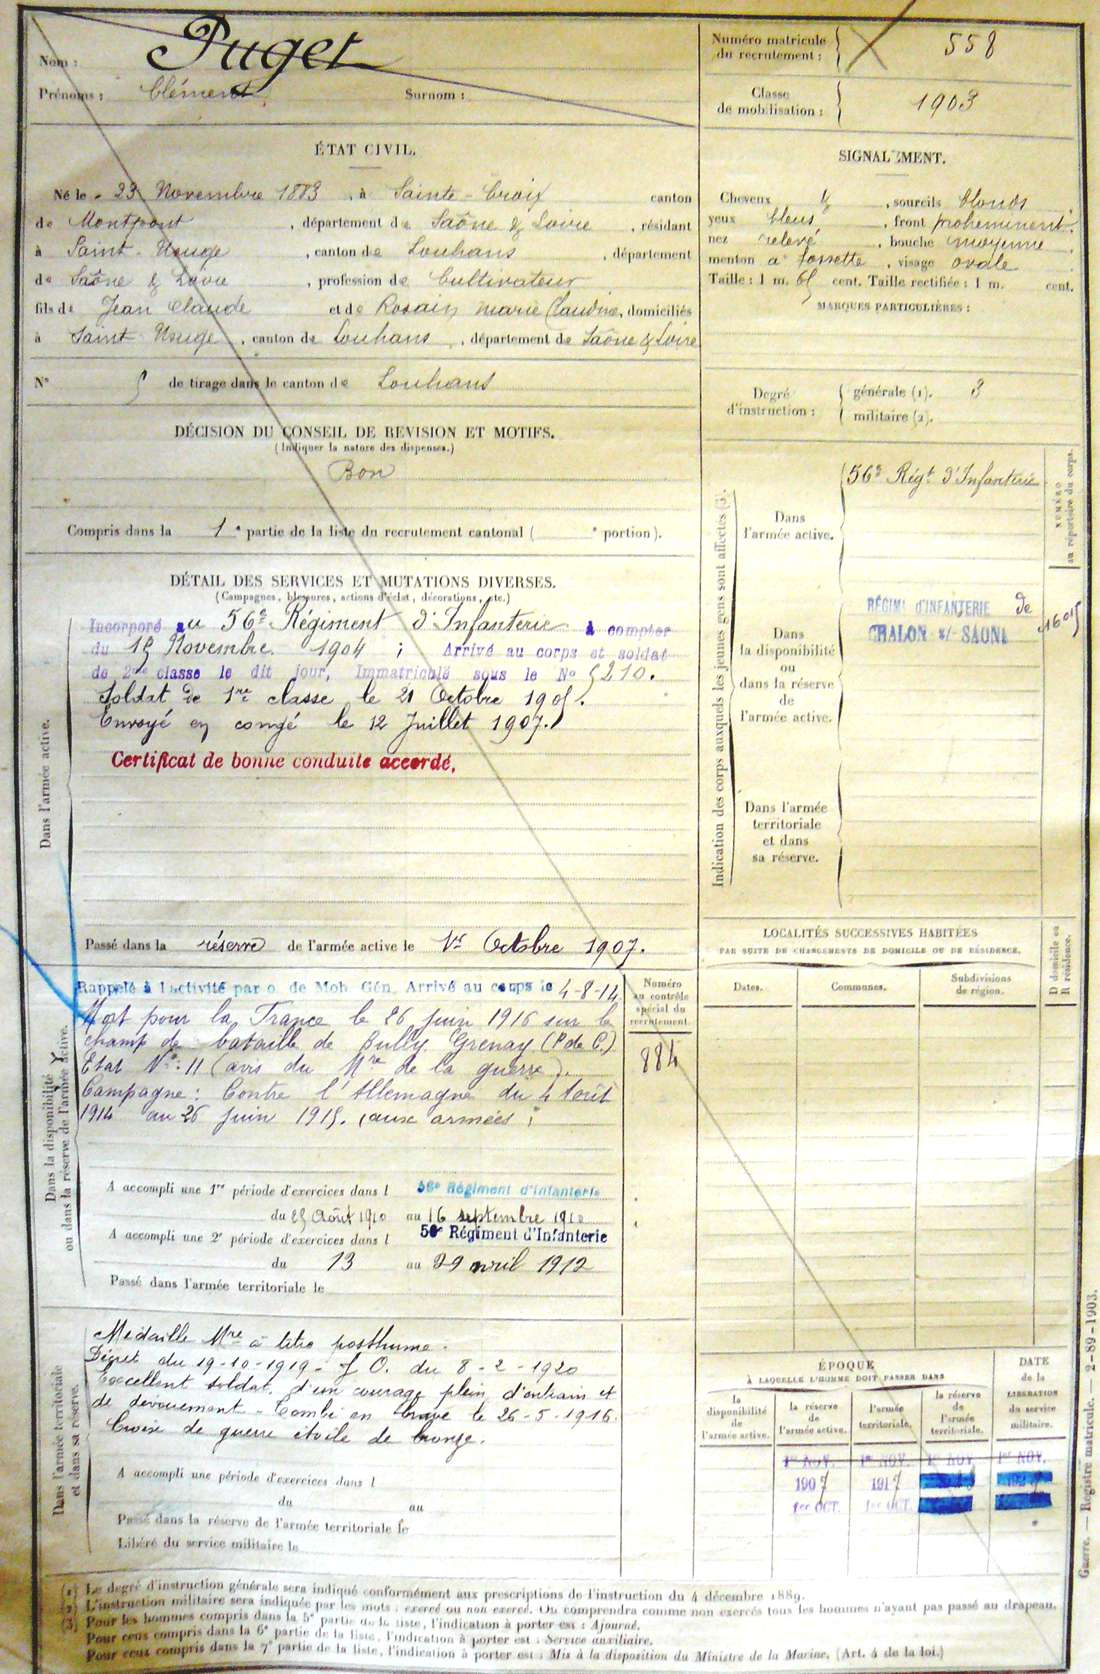 Nom : Puget
Prénoms : Clément Surnom :
Numéro matricule du recrutement : 558
Classe de mobilisation : 1903
ÉTAT CIVIL.
Né le 23 Novembre 1883, à Sainte-Croix canton
de Montpont, département de Saône & Loire, résidant
à Saint-Usuge, canton de Louhans, département
de Saône & Loire, profession de Cultivateur
fils de Jean Claude et de Rosain Marie Claudine, domiciliés
à Saint Usuge, canton de Louhans, département de Saône & Loire
N° de tirage dans le canton de Louhans
SIGNALEMENT.
Cheveux, sourcils blonds
yeux bleus, front proheminent.
nez relevé, bouche moyenne
menton à fossette, visage ovale
Taille : 1 m. 65 cent. Taille rectifiée : 1 m. cent.
MARQUES PARTICULIÈRES :
Degré d'instruction :
générale (1). 3
militaire (2).
DÉCISION DU CONSEIL DE REVISION ET MOTIFS.
(Indiquer la nature des dispenses.)
Bon
Compris dans la 1e partie de la liste du recrutement cantonal ( e portion).
DÉTAIL DES SERVICES ET MUTATIONS DIVERSES.
(Campagnes, blessures, actions d'éclat, décorations, etc.)
Dans l'armée active.
Incorporé au 56e Régiment d'Infanterie à compter
du 15 Novembre 1904 ; Arrivé au corps et soldat
de 2me classe le dit jour, Immatriculé sous le No 5210.
Soldat de 1re classe le 21 Octobre 1905.
Envoyé en congé le 12 Juillet 1907.
Certificat de bonne conduite accordé.
Passé dans la réserve de l'armée active le 1er Octobre 1907.
Indication des corps auxquels les jeunes gens sont affectés (3).
NUMÉRO au répertoire du corps.
Dans l'armée active.
56e Régt d'Infanterie
Dans la disponibilité ou dans la réserve de l'armée active.
RÉGIMt d'INFANTERIE de
CHALON s/ SAONE
Dans l'armée territoriale et dans sa réserve.
LOCALITÉS SUCCESSIVES HABITÉES
PAR SUITE DE CHANGEMENTS DE DOMICILE OU DE RÉSIDENCE.
Dates. Communes. Subdivisions de région. D domicile ou R résidence.
Dans la disponibilité ou dans la réserve de l'armée active.
Rappelé à l'activité par o. de Mob. Gén. Arrivé au corps le 4-8-14
Mort pour la France le 26 juin 1916 sur le
champ de bataille de Bully Grenay (P. de C.)
Etat No : 11 (avis du Mre de la guerre).
Campagne : Contre l'Allemagne du 4 Août
1914 au 26 juin 1915. (aux armées)
Numéro au contrôle spécial du recrutement.
884
A accompli une 1re période d'exercices dans l 56e Régiment d'Infanterie
du 25 Août 1910 au 16 septembre 1910
A accompli une 2e période d'exercices dans l 56e Régiment d'Infanterie
du 13 au 29 avril 1912
Passé dans l'armée territoriale le
Dans l'armée territoriale et dans sa réserve.
Médaille Mre à titre posthume.
Décret du 19-10-1919 - J. O. du 8-2-1920
Excellent soldat, d'un courage plein d'entrain et
de dévouement - Tombé en brave le 26-5-1916.
Croix de guerre étoile de bronze.
A accompli une période d'exercices dans l
du au
Passé dans la réserve de l'armée territoriale le
Libéré du service militaire le
ÉPOQUE
À LAQUELLE L'HOMME DOIT PASSER DANS
la disponibilité de l'armée active.
la réserve de l'armée active.
l'armée territoriale.
la réserve de l'armée territoriale.
DATE de la LIBÉRATION du service militaire.
1er NOV. 1er NOV. 1er NOV. 1er NOV.
1907 1917
1er OCT. 1er OCT.
(1) Le degré d'instruction générale sera indiqué conformément aux prescriptions de l'instruction du 4 décembre 1889.
(2) L'instruction militaire sera indiquée par les mots : exercé ou non exercé. On comprendra comme non exercés tous les hommes n'ayant pas passé au drapeau.
(3) Pour les hommes compris dans la 5e partie de la liste, l'indication à porter est : Ajourné.
Pour ceux compris dans la 6e partie de la liste, l'indication à porter est : Service auxiliaire.
Pour ceux compris dans la 7e partie de la liste, l'indication à porter est : Mis à la disposition du Ministre de la Marine. (Art. 4 de la loi.)
Guerre. — Registre matricule. — 2-89-1903.